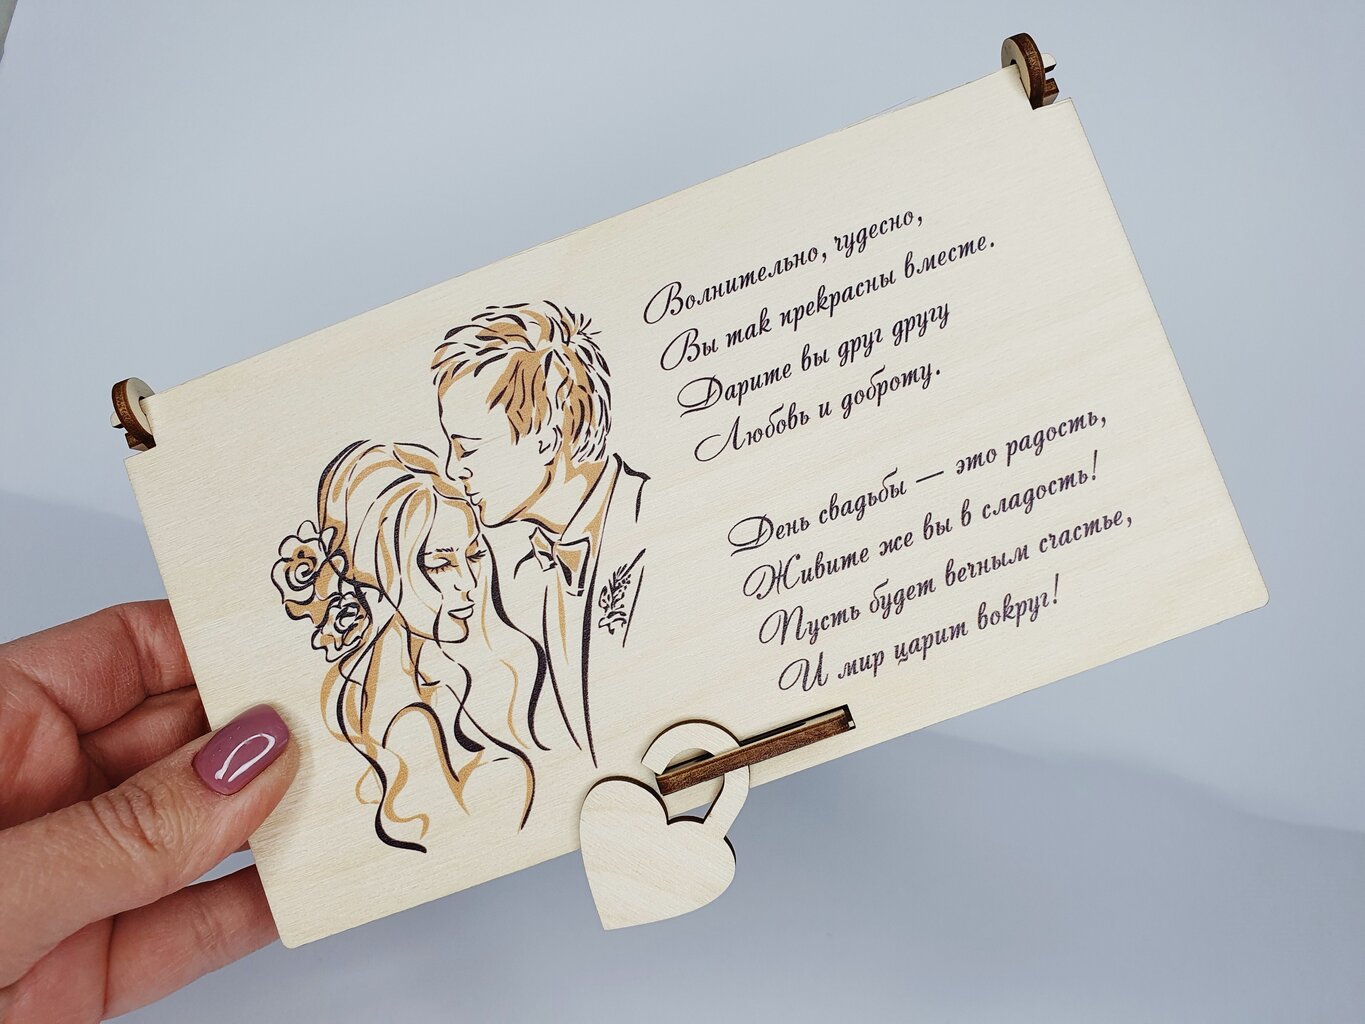 Волнительно, чудесно,
Вы так прекрасны вместе.
Дарите вы друг другу
Любовь и доброту.
День свадьбы — это радость,
Живите же вы в сладость!
Пусть будет вечным счастье,
И мир царит вокруг!